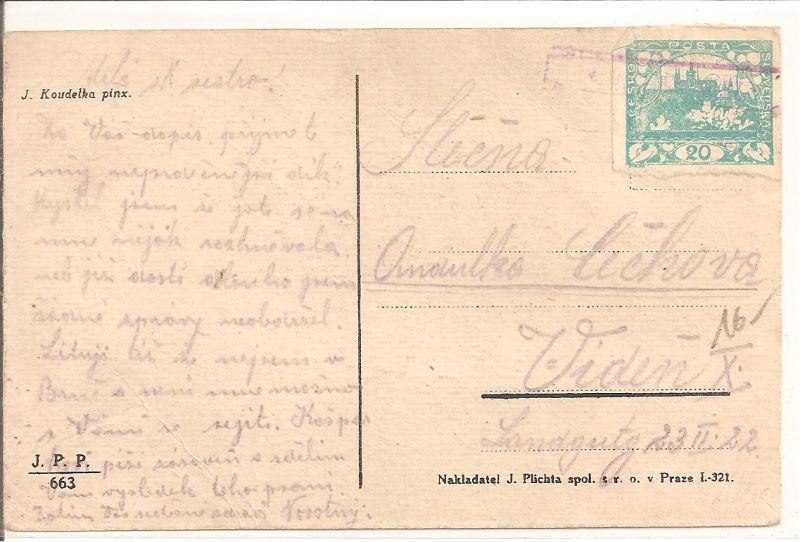 Milá sestro!
J. Koudelka pinx.
Za Váš dopis přijměte
můj nejsrdečnější dík.
Myslel jsem že jste se na
mne nějak rozhněvala,
neb již dosti dlouho jsem
žádné zprávy neobdržel.
Lituji též že nejsem v
Brně a není mne možno
s Vámi se sejíti. Kašpar
píši zároveň a sdělím
Vám výsledek toho psaní.
Zatím Vás srdečně zdraví Novotný.
J. P. P.
663
ČESKO
POSTA
SLOVENSKO
20
Slečna
Andulka Čechova
Vídeň
16
X.
Landgutg 23 II. 22
Nakladatel J. Plichta spol. s r. o. v Praze I.-321.